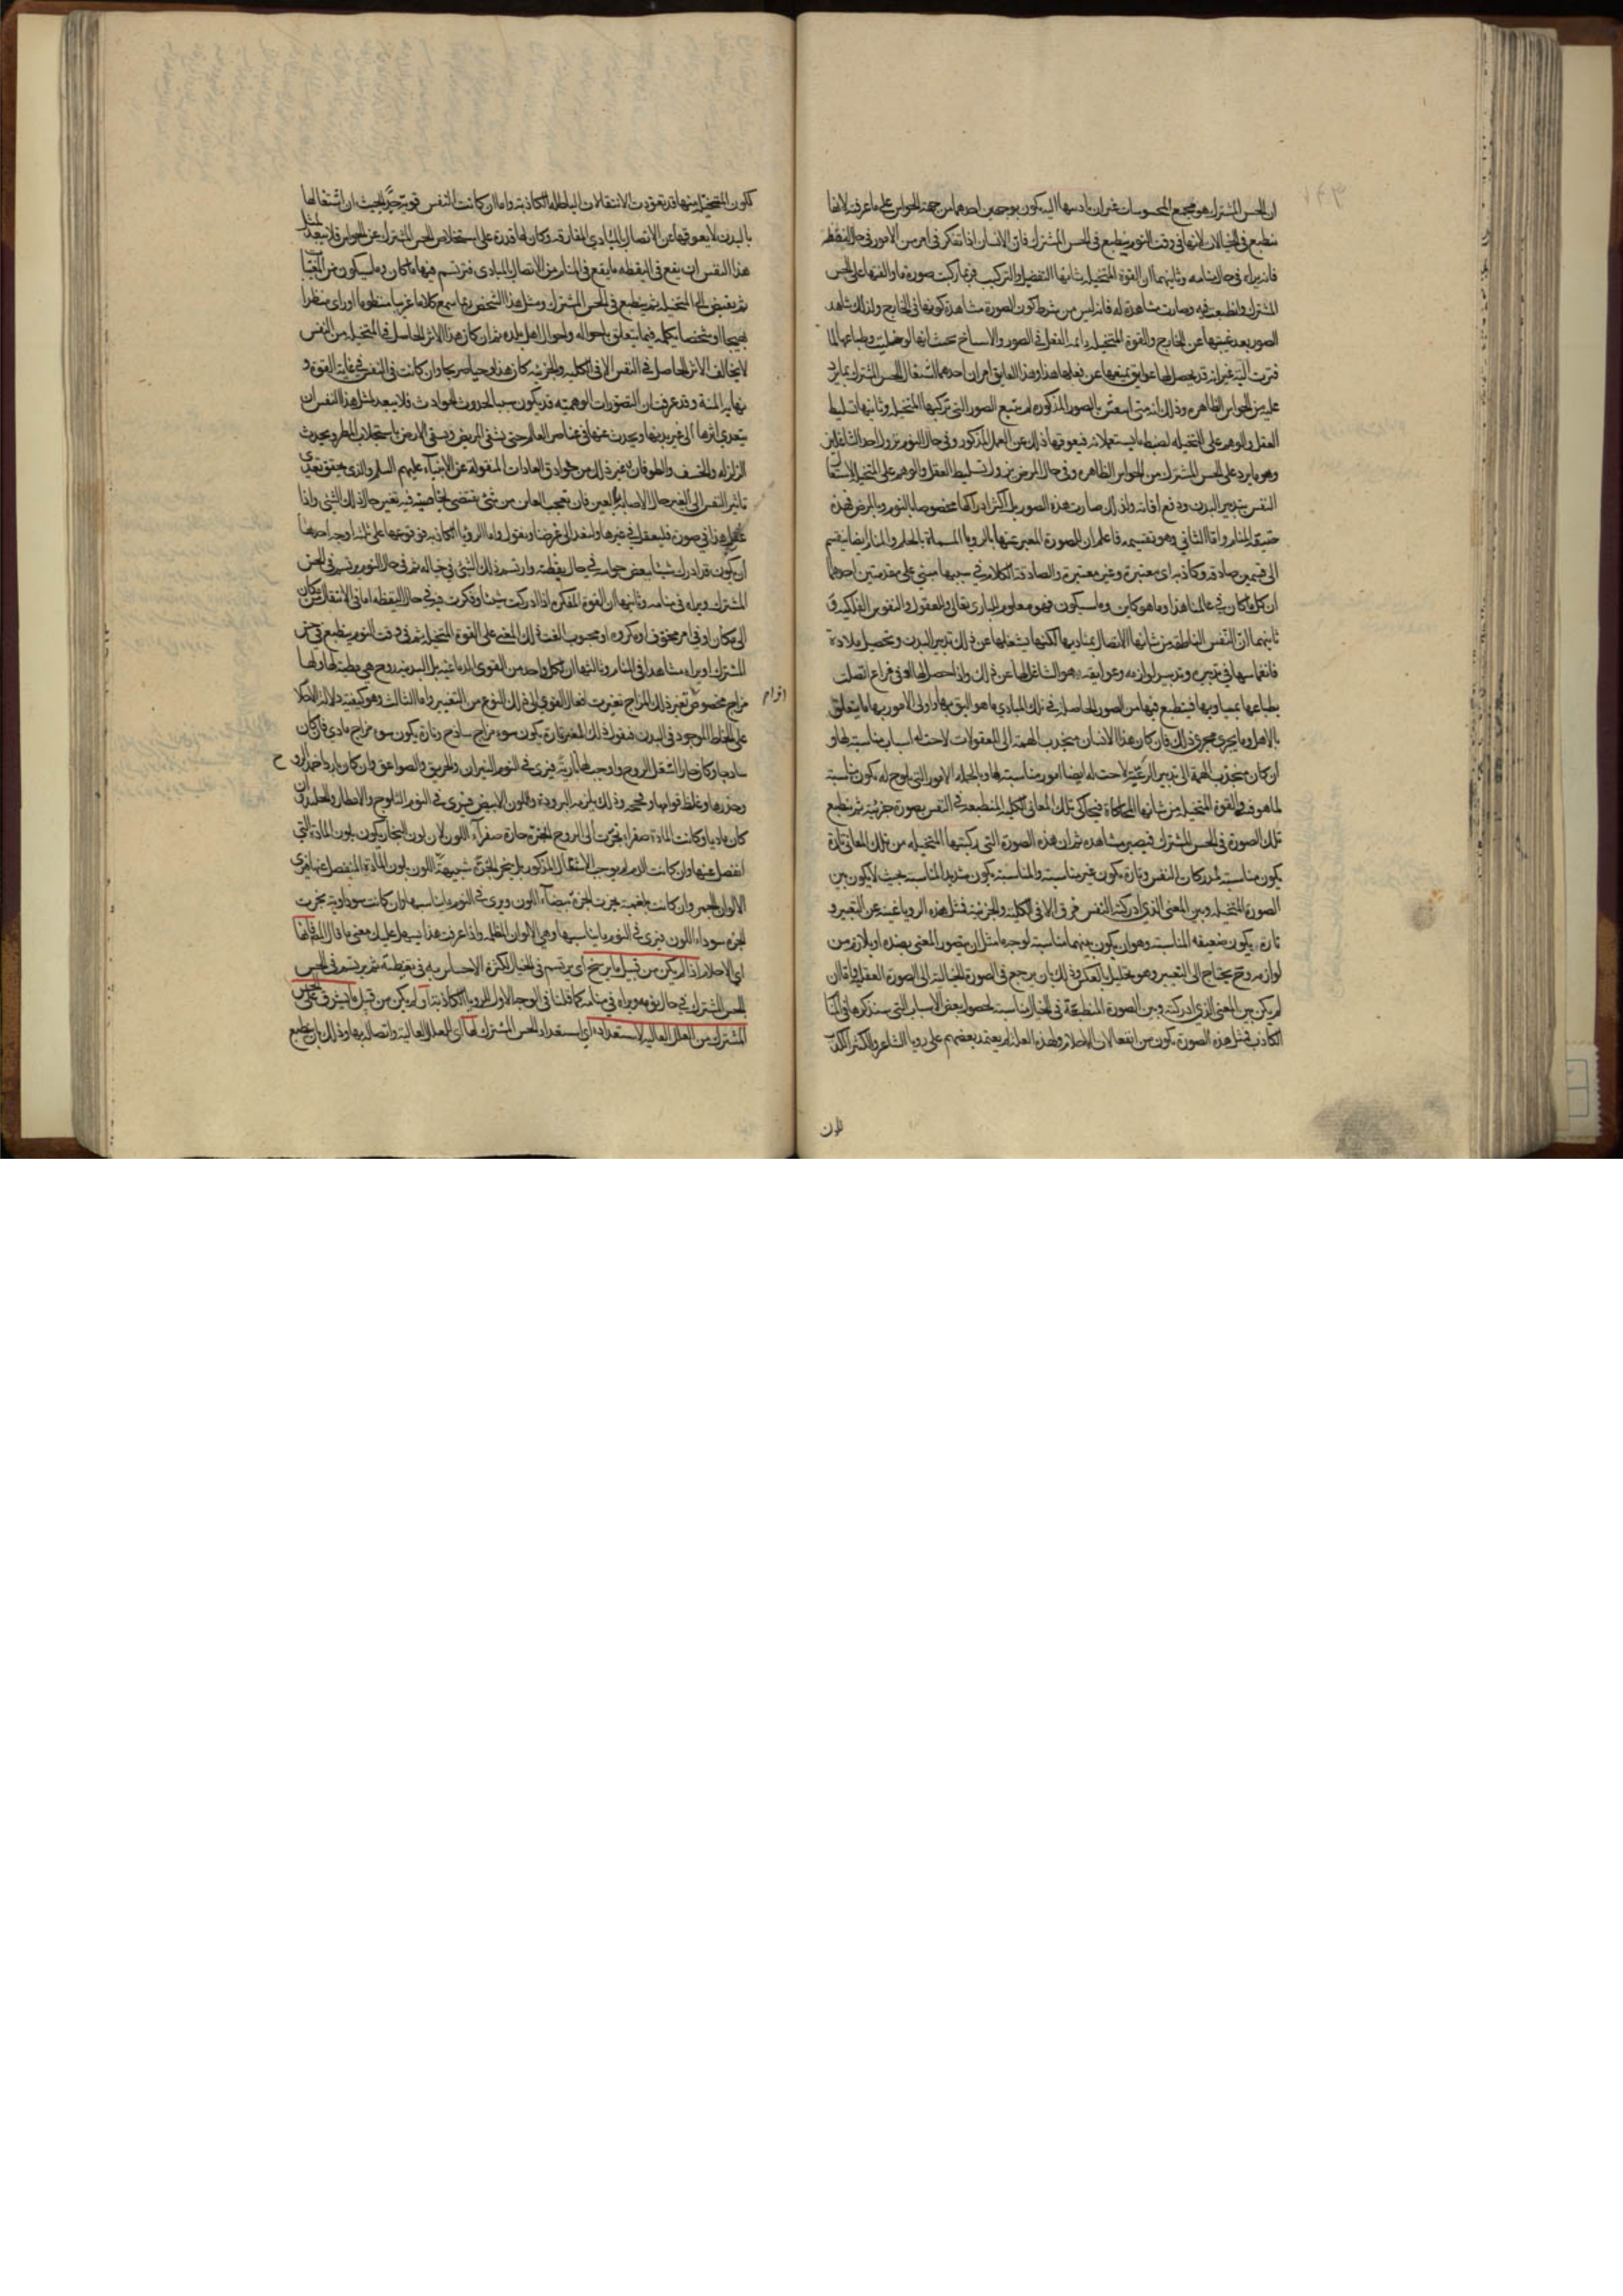 ان الحس المشترك هو مجمع المحسوسات غير ان تأديتها اليه يكون بوجهين احدهما من جهة الحواس على ما عرفته لانها
تنطبع في الخيال لانها في وقت النوم ينطبع في الحس المشترك فان الانسان اذا تفكر في امر من الامور في حال اليقظة
فانه يراه في حال منامه وثانيهما ان القوة المتخيلة شانها التفصيل والتركيب فربما ركبت صورة ما والقتها على الحس
المشترك وانطبعت فيه وصارت مشاهدة له فانه ليس من شرط كون الصورة مشاهدة كونها في الخارج ولذلك شاهد
الصور بعد غيبتها عن الخارج والقوة المتخيلة دائمة الفعل في الصور والاشباح بحيث انها لو خليت وطباعها لما
فترت البتة غير انه قد يحصل لها عوايق يمنعها عن فعلها هذا وهذا العايق امران احدهما اشتغال الحس المشترك بما يرد
عليه من الحواس الظاهره وذلك انه متى انتقش بالصور المذكوره لم يتسع الصور التي تركبها المتخيلة وثانيها تسليط
العقل والوهم على المتخيله لضبط ما يستعملانه فيعوقها ذلك عن العمل المذكور وفي حال النوم يزول احد الشاغلين
وهو ما يرد على الحس المشترك من الحواس الظاهره وفي حال المرض يزول تسليط العقل والوهم على المتخيلة لاشتغال
النفس بتدبير البدن ودفع افاته ولذلك صارت هذه الصور بل اكثر ادراكها مخصوصا بالنوم وبالمرض فهذه
حقيقة المنام واما الثاني وهو تقسيمه فاعلم ان الصورة المعبر عنها بالرويا المسماة بالحلم والمنام ايضا ينقسم
الى قسمين صادقه وكاذبه اى معتبرة وغير معتبرة والصادقة الكلام في سببها مبني على مقدمتين احدهما
ان كل ما كان في عالمنا هذا وما هو كاين وما سيكون فهو معلوم للبارى تعالى والعقول والنفوس الفلكيه و
ثانيهما ان النفس الناطقة من شانها الاتصال بمباديها لكنها يشغلها عن ذلك تدبير البدن وتحصيل ملاذه
فانغماسها في تدبيره وتدبير لوازمه وعوايقه هو الشاغل لها عن ذلك واذا حصل لها ادنى فراغ اتصلت
بطباعها بمباديها فينطبع فيها من الصور الحاصلة في تلك المبادى ما هو اليق بها واولى الامور بها ما يتعلق
بالاهل وما يجرى مجرى ذلك فان كان هذا الانسان منجذب الهمة الى المعقولات لاحت له اسباب مناسبة لها و
ان كان منجذب الهمة الى تدبير الرعية لاحت له ايضا امور مناسبة لها وبالجملة الامور التي تلوح له يكون مناسبة
لما هو فيه والقوة المتخيلة من شانها المحاكاة فيحاكى تلك المعاني الكلية المنطبعة في النفس بصورة جزئية ثم ينطبع
تلك الصورة في الحس المشترك فيصير مشاهده ثم ان هذه الصورة التي ركبتها المتخيله من تلك المعاني تارة
يكون مناسبة لمدركات النفس وتارة يكون غير مناسبة والمناسبة يكون شديد المناسبة بحيث لا يكون بين
الصورة المتخيله وبين المعنى الذي ادركته النفس فرق الا في الكلية والجزئية فمثل هذه الرويا غنية عن التعبير و
تارة يكون ضعيفه المناسبة وهو ان يكون بينهما مناسبة لوجه ما مثل ان يتصور المعنى بضده او بلازم من
لوازمه وح يحتاج الى التعبير وهو تحليل بالعكس وذلك بان يرجع في الصورة الخيالية الى الصورة العقلية واما ان
لم يكن بين المعنى الذي ادركته وبين الصورة المنطبعة في الخيال مناسبة لحصول بعض الاسباب التي سنذكرها في المنام
الكاذب فمثل هذه الصورة يكون من اضغاث الاحلام ولهذه العلة لم يعتمد بعضهم على رويا الشاعر والكثير الكذب
لكون
لكون المتخيلة منها قد تعودت الانتقالات الباطله الكاذبة واما ان كانت النفس قوية جدا بحيث ان اشتغالها
بالبدن لا يعوقها عن الاتصال بالمبادى المفارقه وكان لها قدرة على استخلاص الحس المشترك عن الحواس فلا يبعد لمثل
هذا النفس ان يقع في اليقظه ما يقع في المنام من الاتصال بالمبادى فيرتسم فيها ما كان وما سيكون من المغيبات
ثم يفيض الى المتخيله ثم ينطبع في الحس المشترك ومثل هذا الشخص ربما سمع كلاما غريبا منظوما او راى منظرا
بهيجا او شخصا يكلمه فيما يتعلق باحواله واحوال اهل بلده ثم ان كان هذا الاثر الحاصل في المتخيلة من النفس
لا يخالف الاثر الحاصل في النفس الا في الكلية والجزئية كان هذا وحيا صريحا وان كانت في النفس في غاية القوة و
نهاية المنة وقد عرفت ان التصورات الوهمية قد يكون سببا لحدوث الحوادث فلا يبعد لمثل هذا النفس ان
يتعدى اثرها الى غير بدنها ويحدث عنها في عناصر العالم حتى يشفى المريض ويسقى الارض باستجلاب المطر ويحدث
الزلزله والخسف والطوفان وغير ذلك من خوارق العادات المنقولة عن الانبياء عليهم السلم والذى يحقق تعدى
تاثير النفس الى الغير حال الاصابة بالعين فان تعجب العاين من شئ يقتضى بخاصية فيه تغير حال ذلك الشئ واذا
عقل هذا في صورة فليعقل في غيرها ولنعد الى غرضنا ونقول واما الرويا الكاذبه فوقوعها على ثلثة اوجه احدها
ان يكون قد ادرك شيئا ببعض حواسه في حال يقظته وارتسم ذلك الشئ في خياله ثم في حال النوم يرتسم في الحس
المشترك ويراه في منامه وثانيها ان القوة المفكرة اذا ادركت شيئا وفكرت فيه في حال اليقظه اما في الانتقال من مكان
الى مكان او في امر مخوف او مكروه او محبوب القت ذلك المعنى على القوة المتخيلة ثم في وقت النوم ينطبع في الحس
المشترك او يراه مشاهدا في المنام وثالثها ان لكل واحد من القوى الدماغية بل البدنية روح هي مطية لها ولها
مزاج مخصوص تغير ذلك المزاج تغيرت افعال القوى الى ذلك النوع من التغيير واما الثالث وهو كيفية دلالة الاحلام
على الخلط الموجود في البدن فنقول ذلك المغير تارة يكون سوء مزاج ساذج وتارة يكون سوء مزاج مادى فان كان
ساذجا وكان حارا اشعل الروح واوجب لها نارية فيرى في النوم النيران والحريق والصواعق وان كان باردا خمد الروح
وخدرها وغلظ قوامها وتحجر وذلك يلزمه البرودة واللون الابيض فيرى في النوم الثلوج والامطار والجليد وان
كان ماديا وكانت المادة صفراء بخرت الى الروح ابخرة حارة صفراء اللون لان لون البخار يكون بلون المادة التي
انفصل عنها وان كانت الدم لم يوجب الاشتعال المذكور بل يبخر ابخرة شبيهة اللون بلون المادة المنفصل عنها فيرى
الالوان الحمر وان كانت بلغمية بخرت ابخرة بيضاء اللون ويرى في النوم ما يناسبها وان كانت سوداوية بخرت
ابخرة سوداء اللون فيرى في النوم ما يناسبها وهي الالوان المظلمه واذا عرفت هذا سهل عليك معنى ما قال المص فانها
اى الاحلام اذا لم يكن من قبيل ما يرسخ اى يرتسم في الخيال لكثرة الاحساس به في يقظته ثم يرتسم في الحس
الحس المشترك في حال نومه ويراه في منامه كما قلنا في الوجه الاول للرويا الكاذبة او لم يكن من قبيل ما يشرق على الحس
المشترك من العلل العاليه لاستعداده اى استعداد الحس المشترك لها اى للعلل العالية واتصاله بها وذلك بان ينطبع